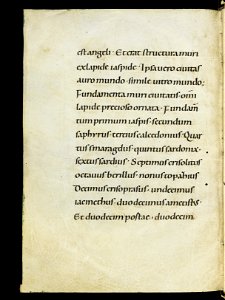 est angeli · Et erat structura muri
ex lapide iaspide · Ipsa uero ciuitas
auro mundo · simile uitro mundo ;
Fundamenta muri ciuitatis · om̄
lapide precioso ornata · Fundam̄
tum primum iaspis · secundum
saphyrus · tercius calcedonius · Quar
tus smaragdus · quintus sardonix ·
sextus sardius · Septimus crisolitus
octauus berillus · nonus topazius
Decimus crisoprasus · undecimus
iacinthus · duodecimus ametistus
Et duodecim portae · duodecim